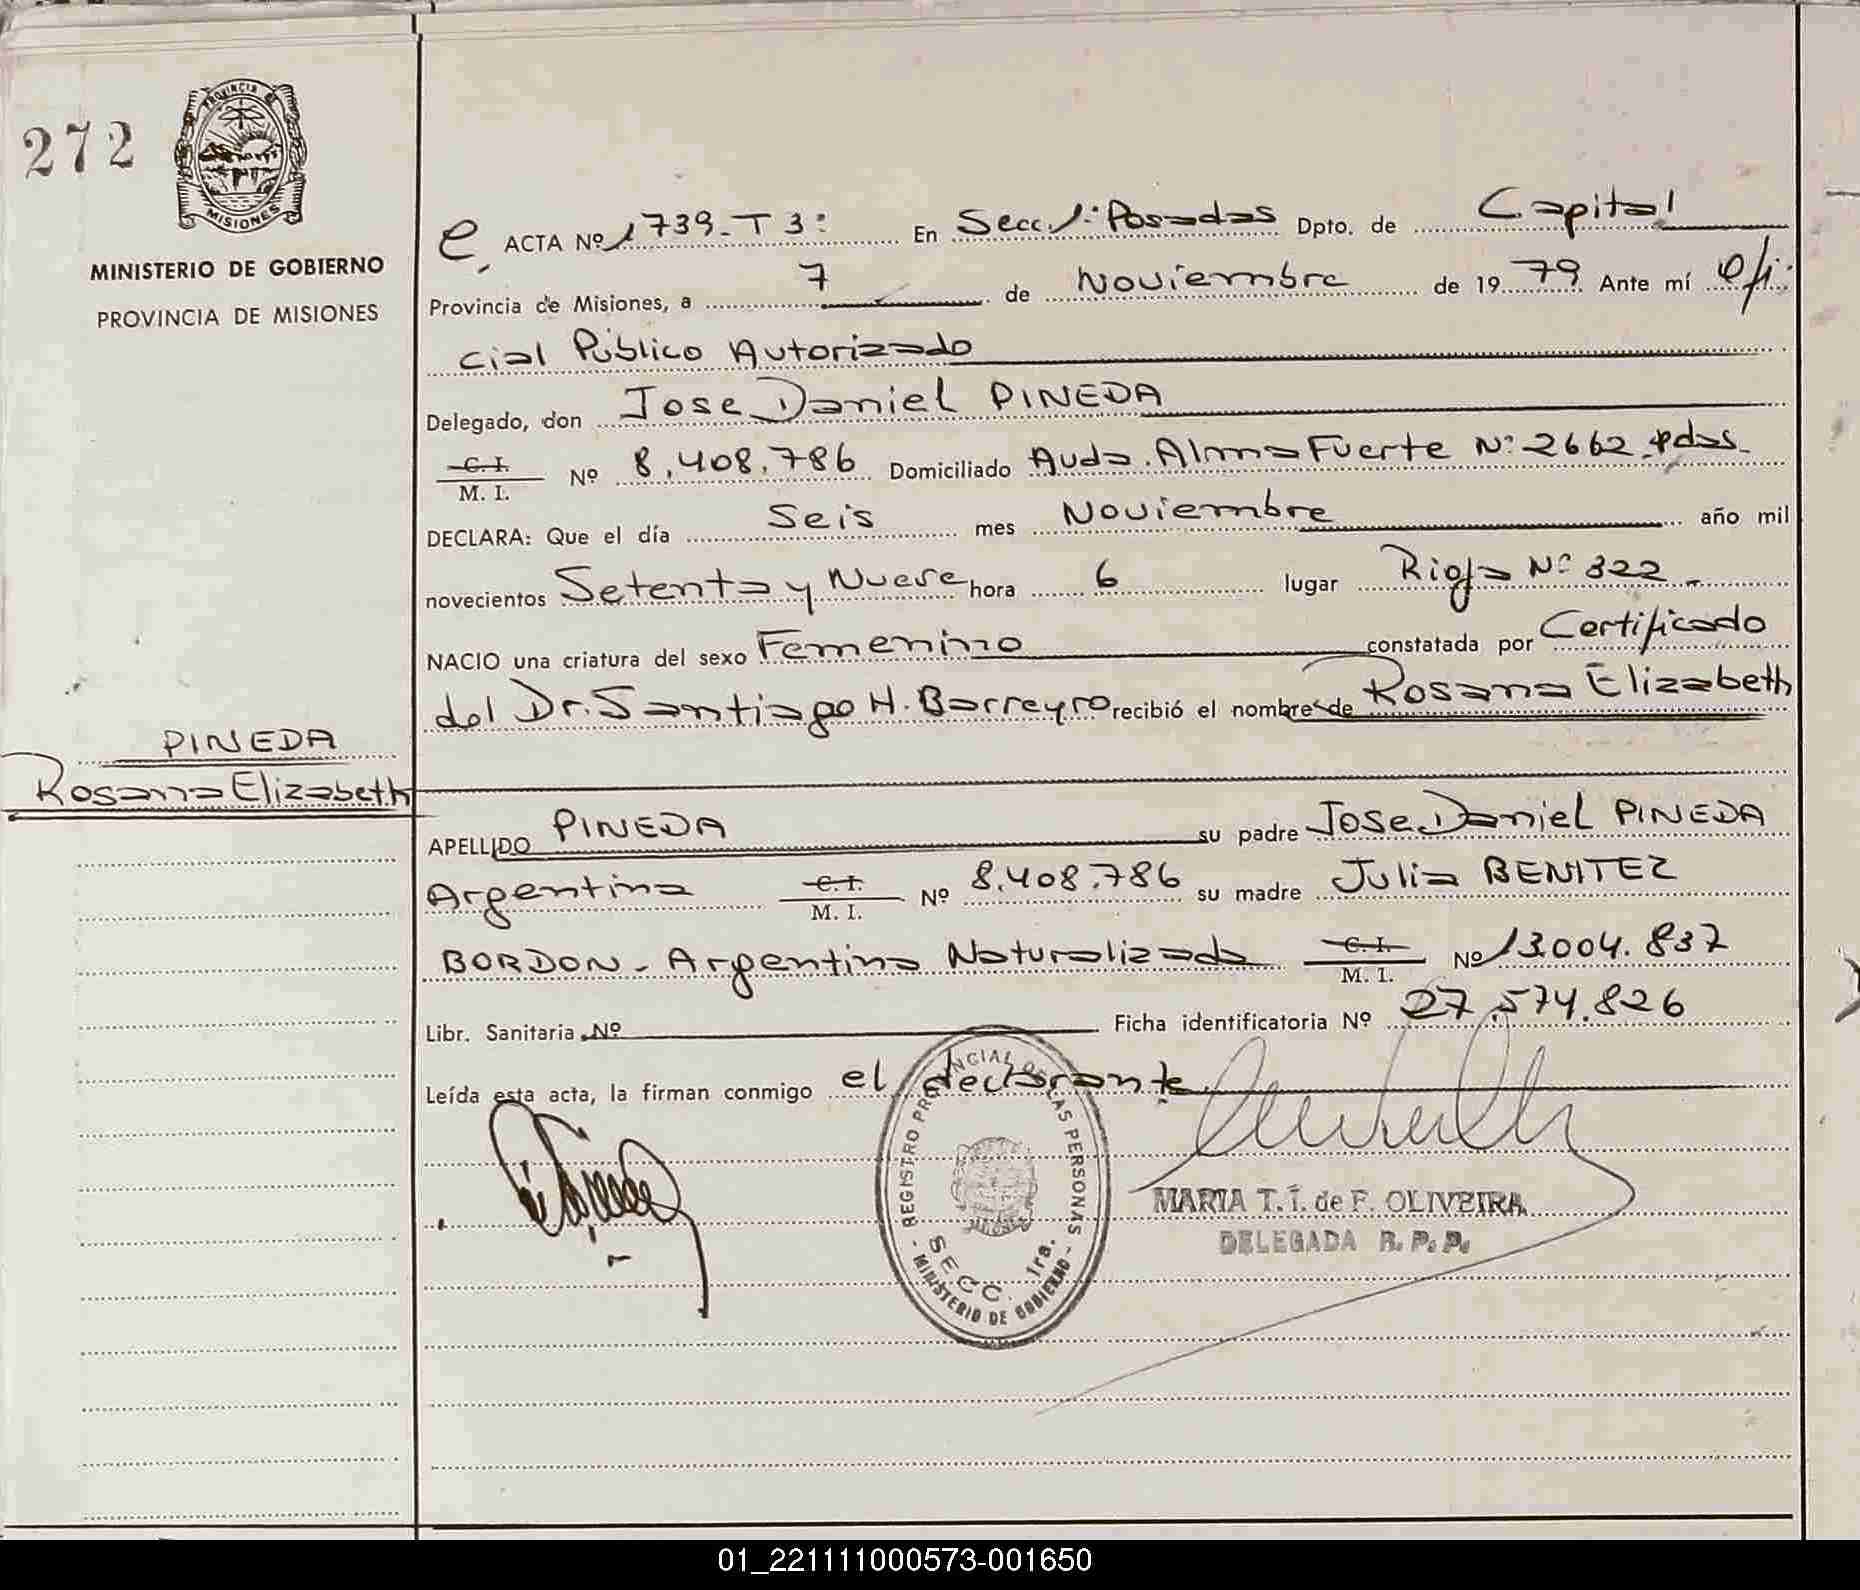 272
PROVINCIA DE
MISIONES
MINISTERIO DE GOBIERNO
PROVINCIA DE MISIONES
PINEDA
Rosana Elizabeth
e, ACTA Nº 1739-T3: En Secc. 1: Posadas Dpto. de Capital
Provincia de Misiones, a 7 de Noviembre de 1979 Ante mí ofi-
cial Público Autorizado
Delegado, don Jose Daniel PINEDA
C. I.
M. I. Nº 8.408.786 Domiciliado Avda. Alma Fuerte Nº 2662 - pdas-
DECLARA: Que el día Seis mes Noviembre año mil
novecientos Setenta y Nueve hora 6 lugar Rioja Nº 322 -
NACIO una criatura del sexo Femenino constatada por Certificado
del Dr. Santiago H. Barreyro recibió el nombre de Rosana Elizabeth
APELLIDO PINEDA su padre Jose Daniel PINEDA
Argentina C. I.
M. I. Nº 8.408.786 su madre Julia BENITEZ
BORDON - Argentina Naturalizada C. I.
M. I. Nº 13.004.837
Libr. Sanitaria Nº Ficha identificatoria Nº 27.574.826
Leída esta acta, la firman conmigo el declarante
REGISTRO PROVINCIAL DE LAS PERSONAS
SECC. 1ra.
- MINISTERIO DE GOBIERNO -
MARIA T. I. de F. OLIVEIRA
DELEGADA R. P. P.
01_221111000573-001650